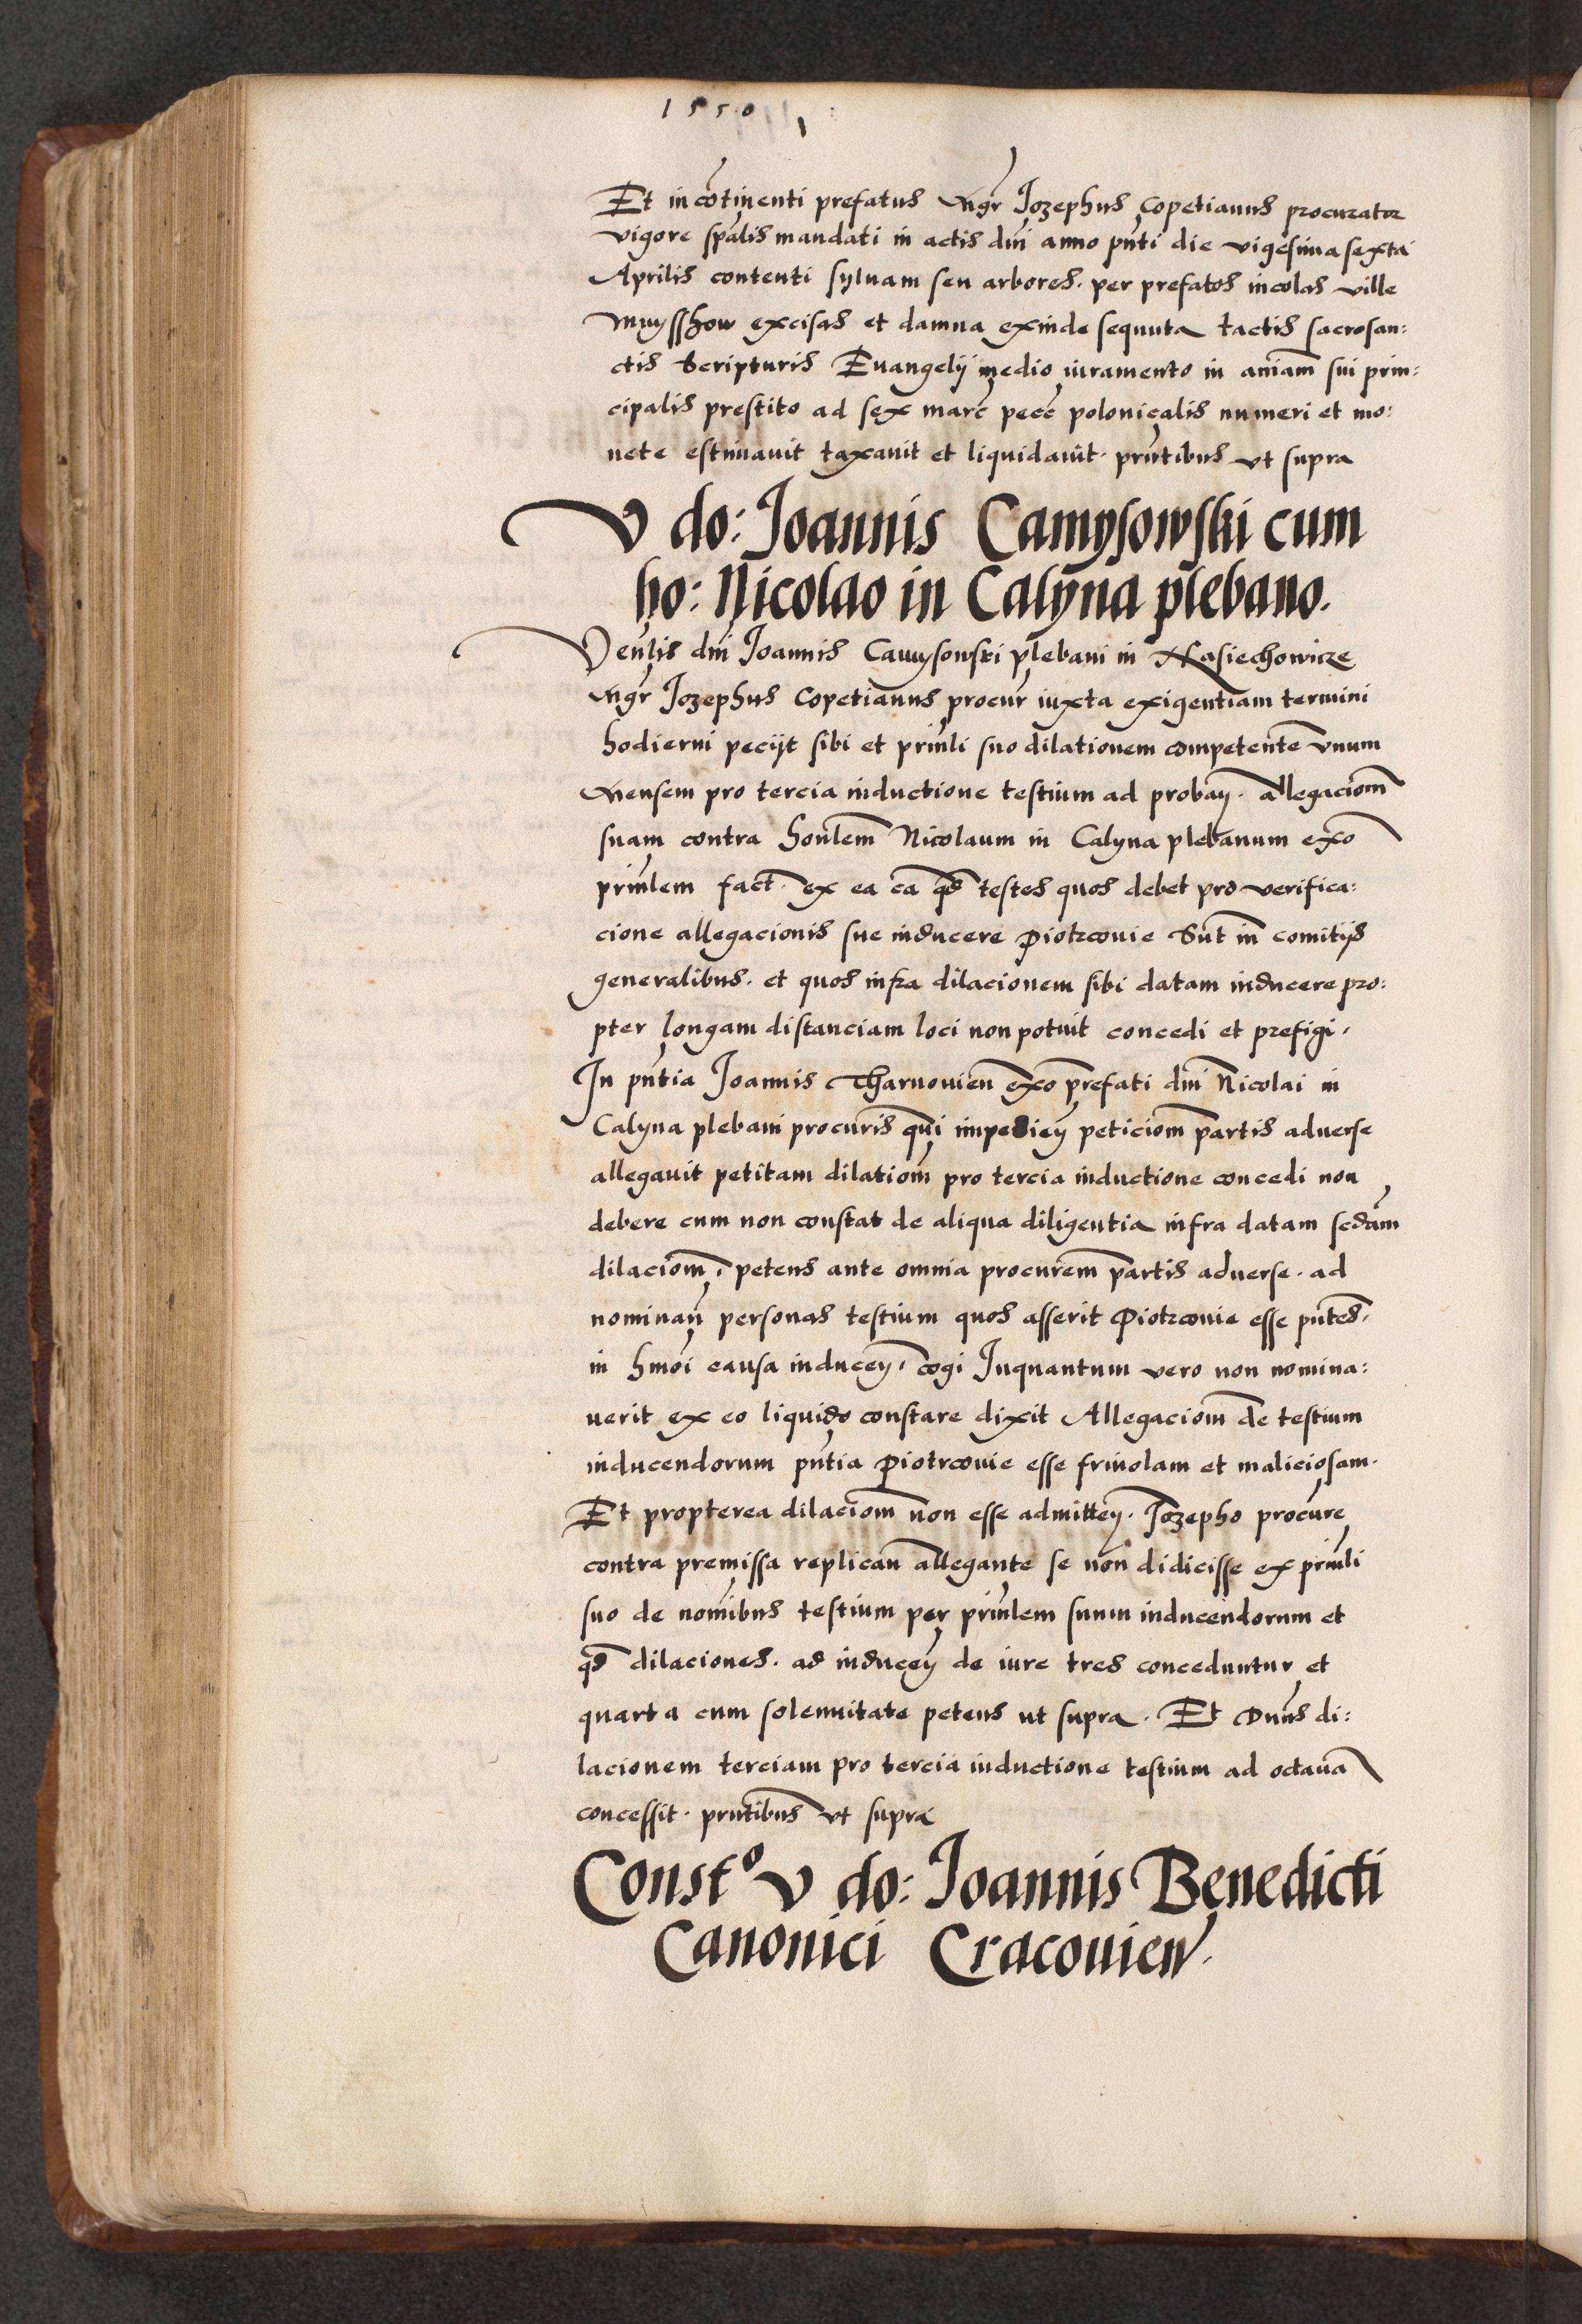 1550
Et incōtinenti prefatus mgr̄ Jozephus Copetianus procurator
vigore spālis mandati in actis dnī anno pñti die vigesima sexta
Aprilis contenti syluam seu arbores. per prefatos incolas ville
Mnysshow excisas et damna exinde sequuta tactis sacrosan:
ctis scripturis Euangelij medio iuramento in aniam̄ sui prin:
cipalis prestito ad sex marc̄ pecc̄ polonicalis numeri et mo:
nete estimauit taxauit et liquidauit. prn̄tibus vt supra
V do: Joannis Camysowski cum
ho: Nicolao in Calyna plebano.
Ven̄lis dnī Joannis Camysowski plebani in Nasiechowicze
mgr̄ Jozephus Copetianus procur̄ iuxta exigentiam termini
hodierni pecijt sibi et prin̄li suo dilationem competentē vnum
mensem pro tercia inductione testium ad proban̄. allegaciom̄
suam contra honlem̄ Nicolaum in Calyna plebanum exo̅
prin̄lem fact̄. ex ea cā qd̄ testes quos debet pro verifica:
cione allegacionis sue inducere Piotrcouie sūt in comitijs
generalibus. et quos infra dilacionem sibi datam inducere pro:
pter longam distanciam loci non potuit concedi et prefigi.
In pn̄tia Joannis Tharnouien̄ exo̅ prefati dnī Nicolai in
Calyna plebani procūris qui impedien̄ peticiom̄ partis aduerse
allegauit petitam dilatiom̄ pro tercia inductione concedi non
debere cum non constat de aliqua diligentia infra datam sedām
dilaciom̄. petens ante omnia procūrem partis aduerse. ad
nominan̄ personas testium quos asserit Piotrcouie esse pn̄tes.
in hmōi causa inducen̄. cogi Inquantum vero non nomina:
uerit ex eo liquido constare dixit Allegaciom̄ de testium
inducendorum pn̄tia Piotrcouie esse friuolam et maliciosam.
Et propterea dilaciom̄ non esse admitten̄. Jozepho procūre
contra premissa replican̄ allegante se non didicisse ex prin̄li
suo de nomībus testium per prin̄lem suum inducendorum et
qd̄ dilaciones. ad inducen̄ de iure tres conceduntur et
quarta cum solennitate petens ut supra. Et Dn̄us di:
lacionem terciam pro tercia inductione testium ad octauā
concessit. prn̄tibus vt supra
Constº V do: Joannis Benedicti
Canonici Cracouien̄.